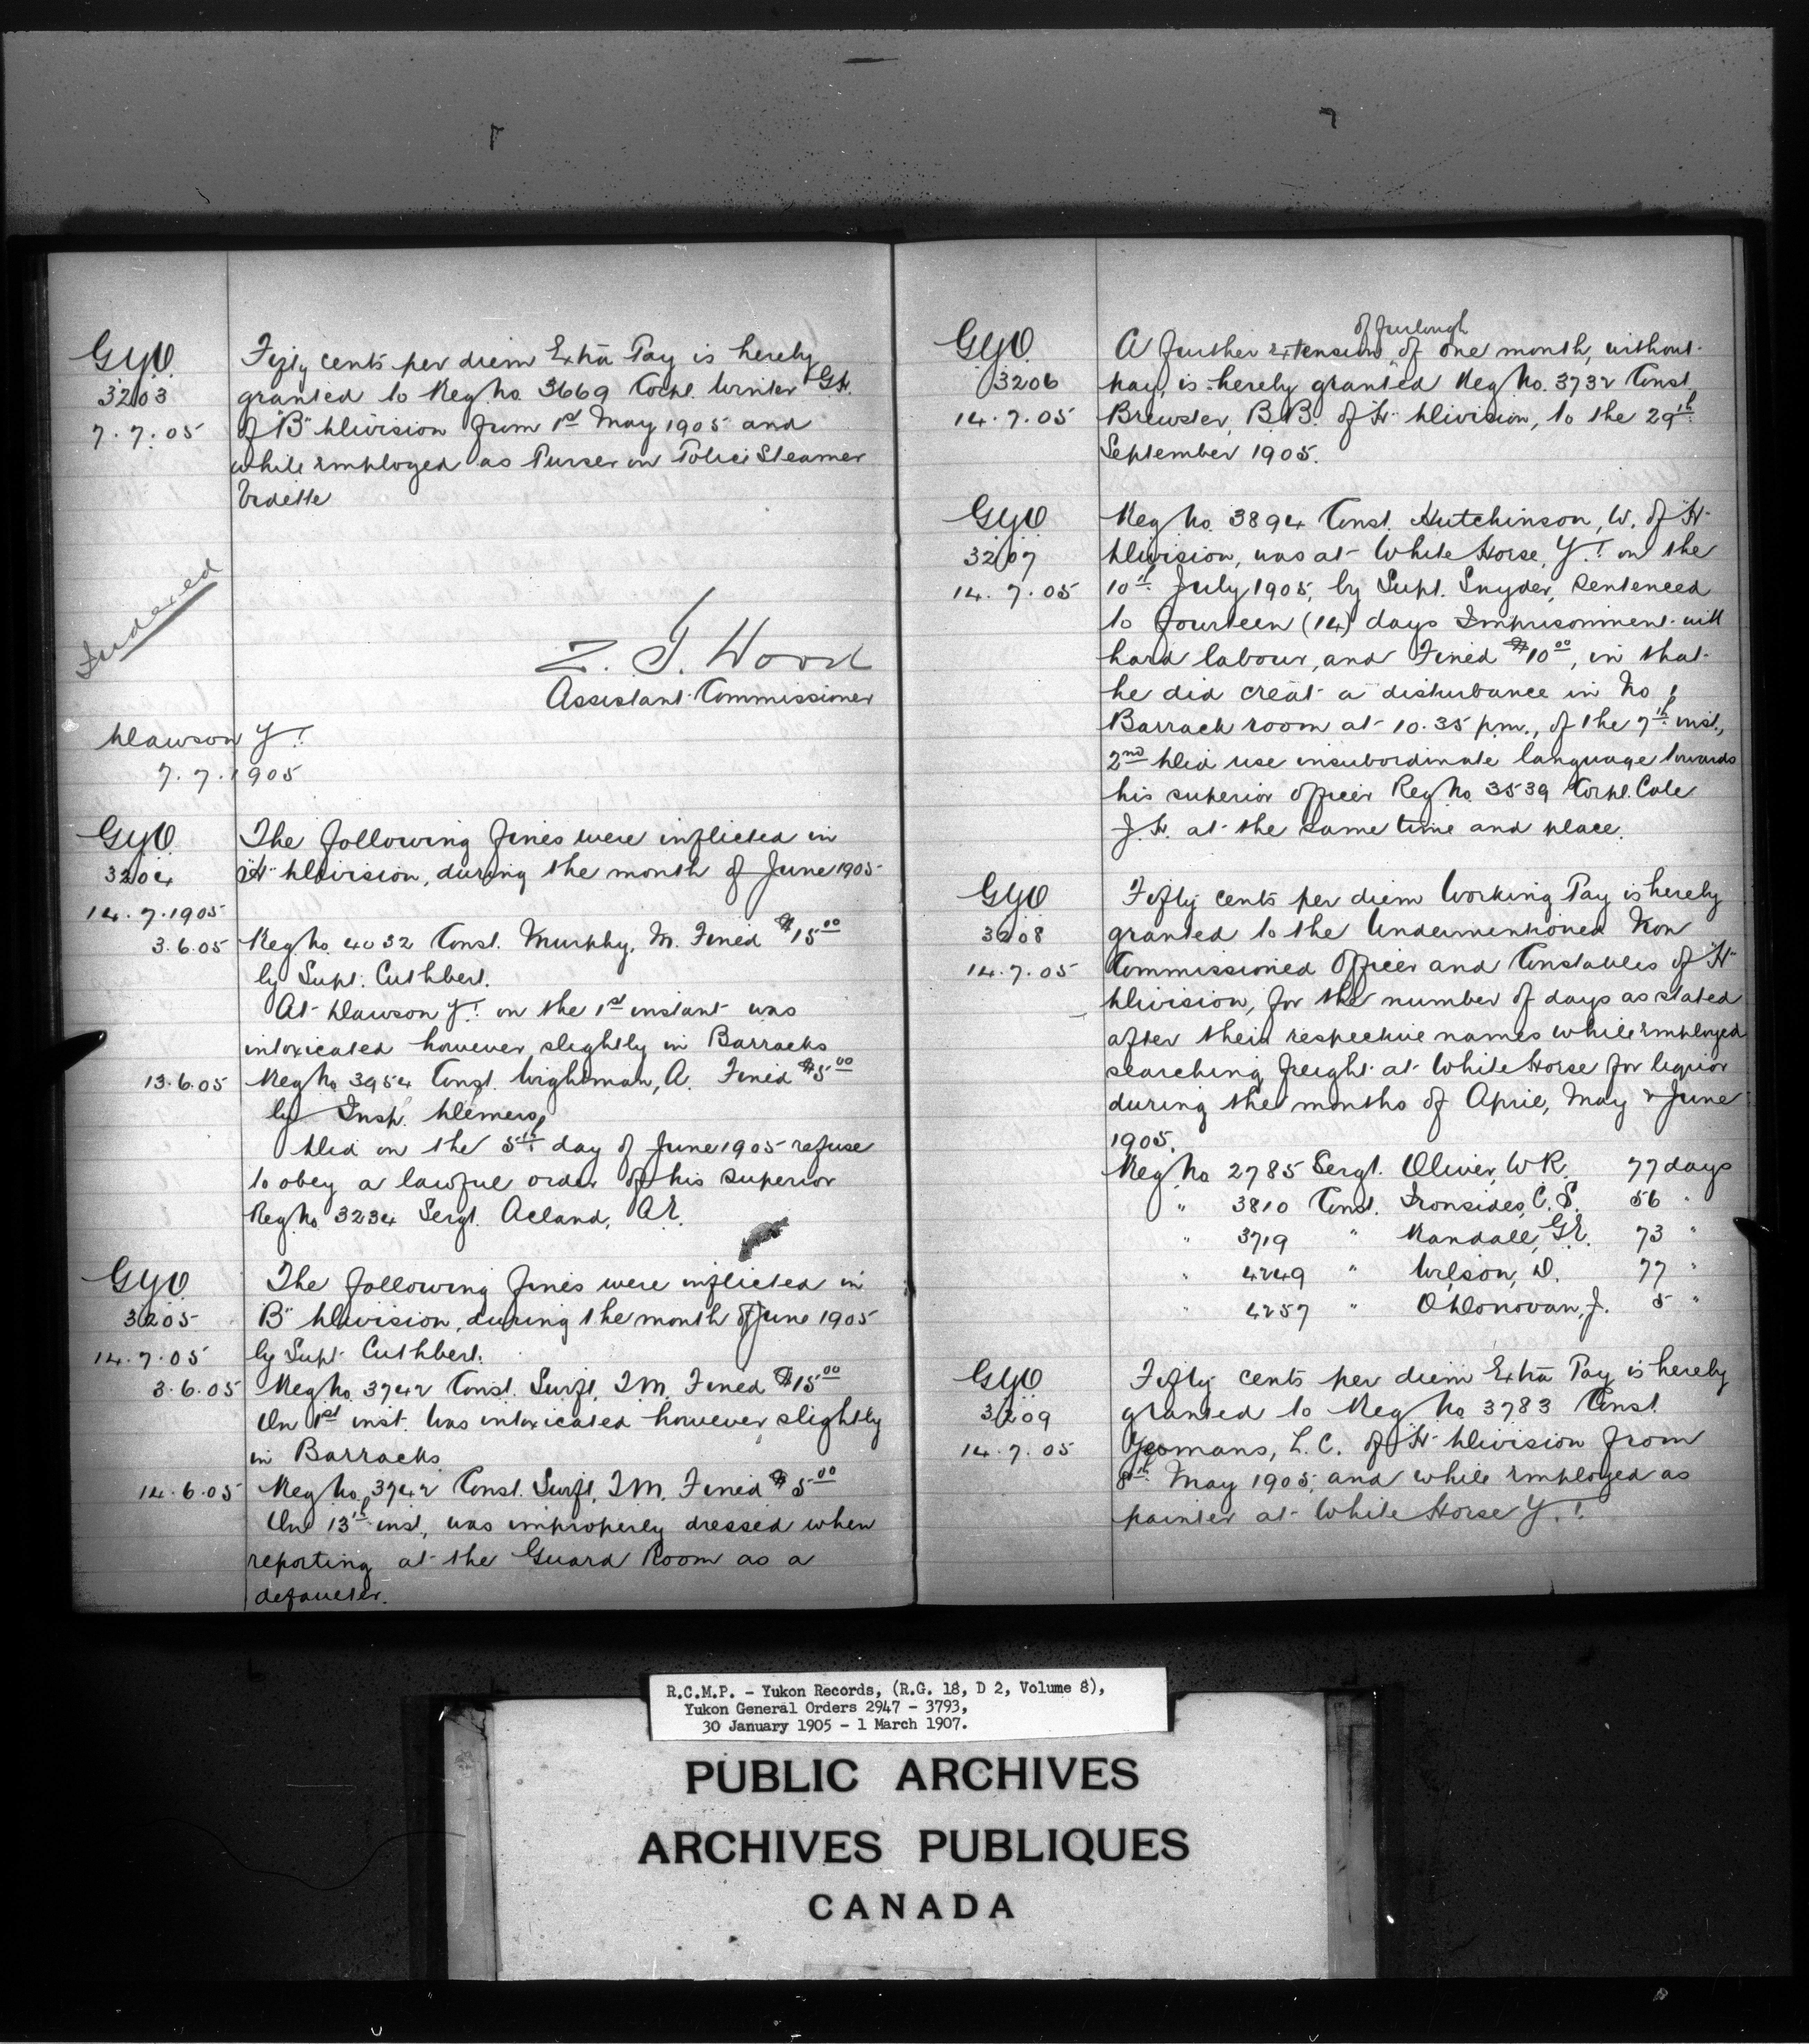 GYO
3203
7.7.05
Fifty cents per diem Extra Pay is hereby
granted to Reg No. 3669 Corpl. Winter G.H.
of "B" Division from 1st May 1905 and
while employed as Purser on Police Steamer
Vidette
Indexed
Z. T. Wood
Assistant Commissioner
Dawson Y.T.
7.7.1905
GYO
3204
14.7.1905
The following fines were inflicted in
"H" Division, during the month of June 1905
3.6.05 Reg No. 4032 Const. Murphy, M. Fined $15.00
by Supt. Cuthbert.
At Dawson Y.T. on the 1st instant was
intoxicated however slightly in Barracks
13.6.05 Reg No. 3954 Const. Wightman, A. Fined $5.00
by Insp. Demers,
Did on the 5th day of June 1905 refuse
to obey a lawful order of his superior
Reg No. 3234 Sergt. Acland, A.E.
GYO
3205
14.7.05
The following fines were inflicted in
B" Division, during the month of June 1905
by Supt. Cuthbert.
3.6.05 Reg No. 3742 Const. Swift, T.M. Fined $15.00
On 1st inst. Was intoxicated however slightly
in Barracks
14.6.05 Reg No. 3742 Const. Swift, T.M. Fined $5.00
On 13th inst, was improperly dressed when
reporting at the Guard Room as a
defaulter.
GYO
3206
14.7.05
of furlough
A further extension, of one month, without
pay, is hereby granted Reg No. 3732 Const.
Brewster, B.B. of "H" Division, to the 29th
September 1905.
GYO
3207
14.7.05
Reg No. 3894 Const. Hutchinson, W. of "H"
Division, was at White Horse, Y.T. on the
10th July 1905, by Supt. Snyder, sentenced
to fourteen (14) days Imprisonment with
hard labour, and Fined $10.00, in that
he did creat a disturbance in No 1
Barrack room at 10.35 p.m., of the 7th inst.,
2nd Did use insubordinate language towards
his superior officer Reg No. 3539 Corpl. Cole
J.H. at the same time and place.
GYO
3208
14.7.05
Fifty cents per diem Working Pay is hereby
granted to the Undermentioned Non
Commissioned Officer and Constables of "H"
Division, for the number of days as stated
after their respective names while employed
searching freight at White Horse for liquor
during the months of April, May & June
1905.
Reg No 2785 Sergt. Oliver, W.R. 77 days
" 3810 Const. Ironsides, C.S. 56 "
" 3719 " Randall, G.E. 73 "
" 4249 " Wilson, D. 77 "
" 4257 " O'Donovan, J. 5 "
GYO
3209
14.7.05
Fifty cents per diem Extra Pay is hereby
granted to Reg No 3783 Const.
Yeomans, L.C. of "H" Division from
8th May 1905, and while employed as
painter at White Horse Y.T.
R.C.M.P. - Yukon Records, (R.G. 18, D 2, Volume 8),
Yukon General Orders 2947 - 3793,
30 January 1905 - 1 March 1907.
PUBLIC ARCHIVES
ARCHIVES PUBLIQUES
CANADA